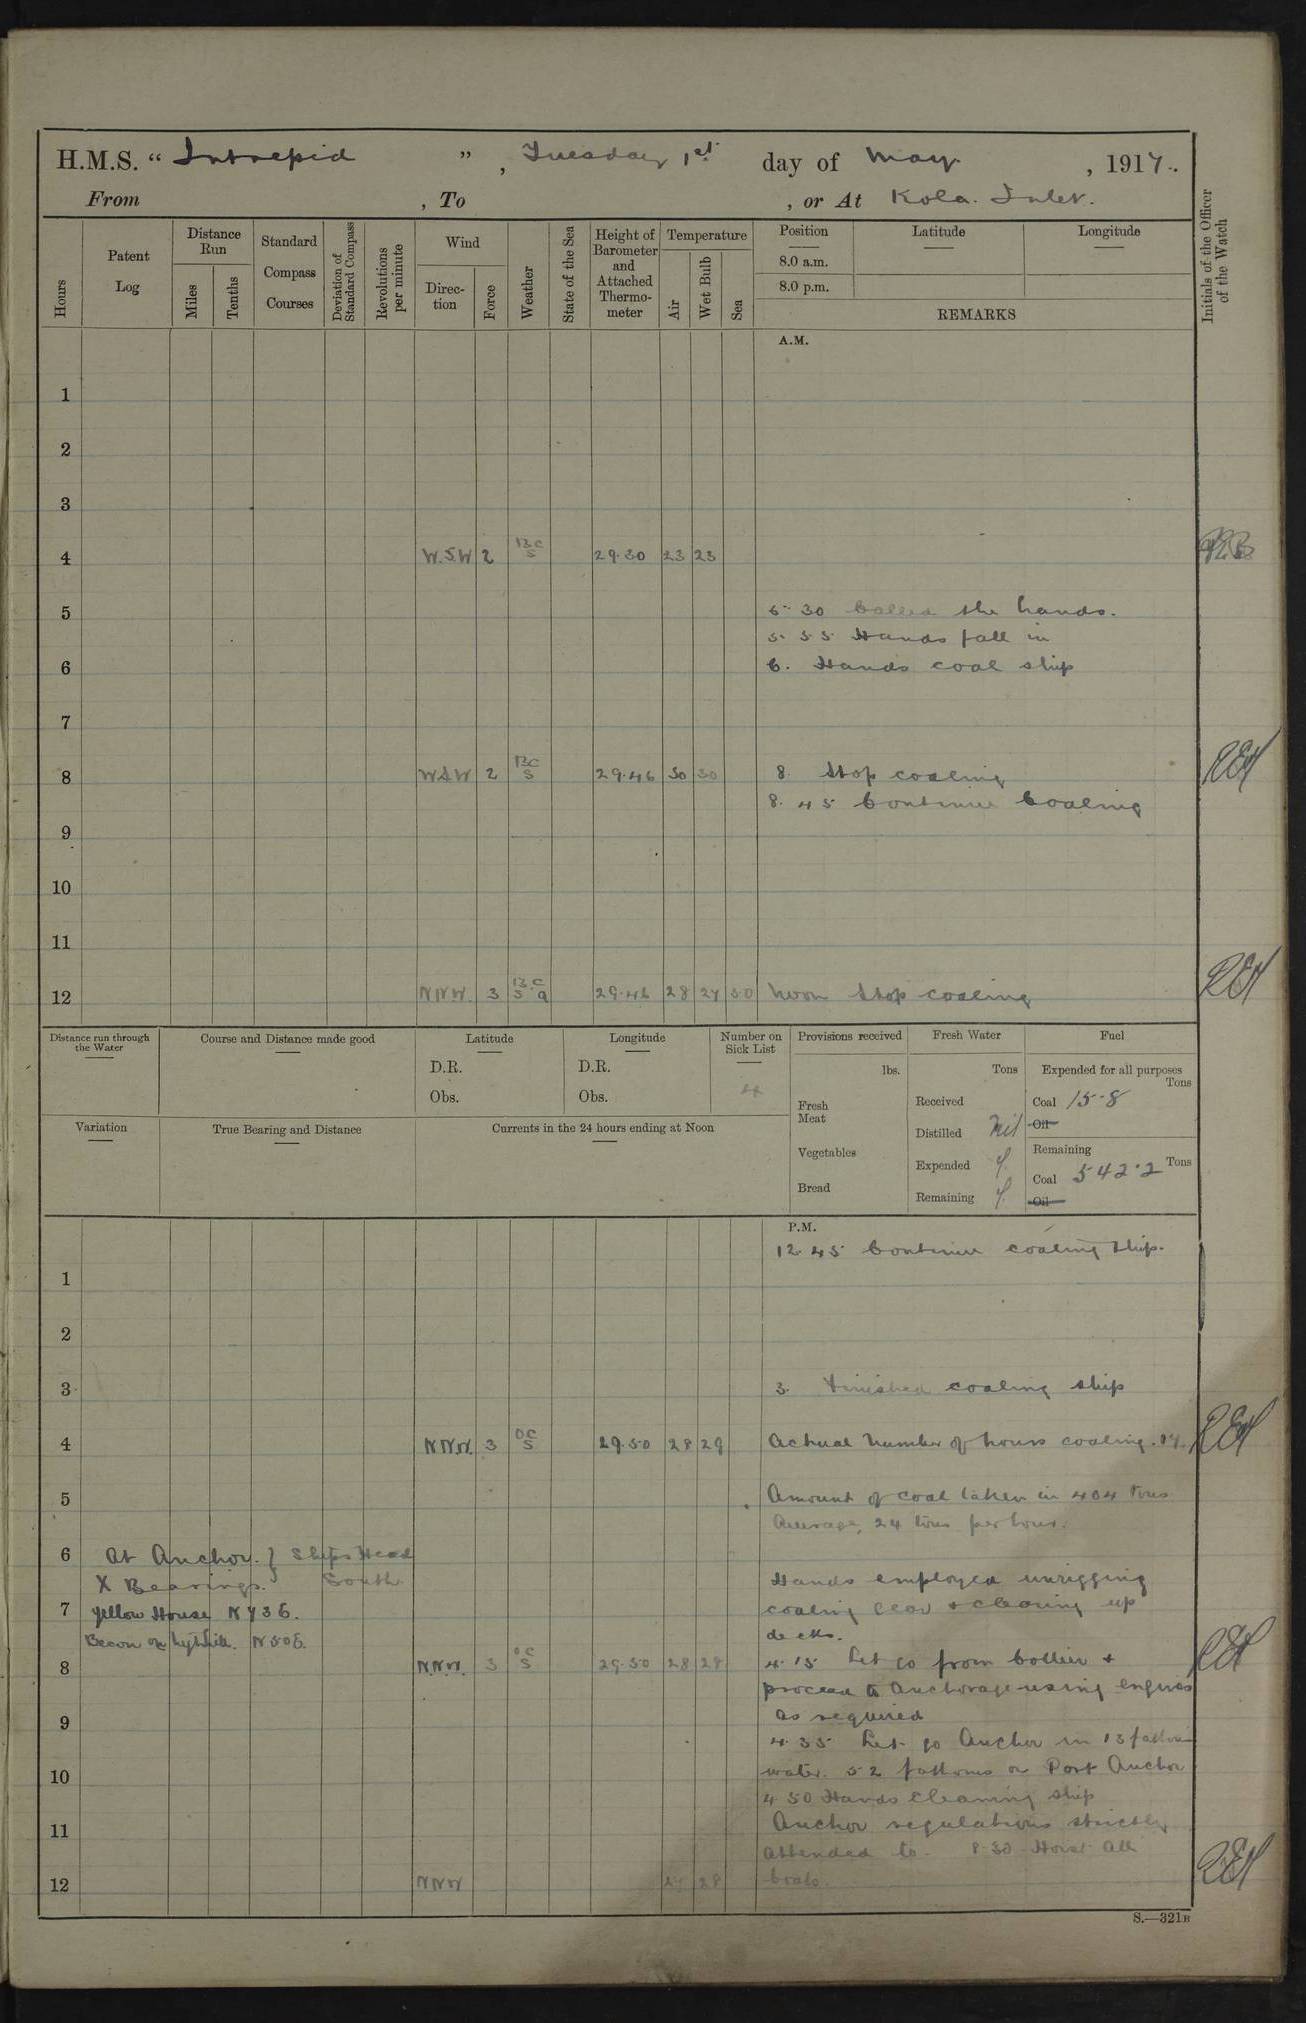 H.M.S. “ Intrepid ” , Tuesday 1st day of May , 1917.
From , To , or At Kola Inlet.
Hours
Patent Log
Distance Run
Miles
Tenths
Standard Compass Courses
Deviation of Standard Compass
Revolutions per minute
Wind
Direction
Force
Weather
State of the Sea
Height of Barometer and Attached Thermometer
Temperature
Air
Wet Bulb
Sea
Position
8.0 a.m.
8.0 p.m.
Latitude
Longitude
REMARKS
Initials of the Officer of the Watch
A.M.
1
2
3
4 W.S.W 2 BC S 29.30 23 23
5 5 30 Called the hands.
5.55 Hands fall in
6 6. Hands coal ship
7
8 WSW 2 BC S 29.46 30 30 8 Stop coaling REH
8.45 Continue Coaling
9
10
11
12 NNW. 3 B.C S q 29.46 28 27 30 Noon Stop coaling REH
Distance run through the Water
Course and Distance made good
Latitude
D.R.
Obs.
Longitude
D.R.
Obs.
Number on Sick List
4
Provisions received
lbs.
Fresh Meat
Vegetables
Bread
Fresh Water
Tons
Received
Distilled Nil
Expended 7.
Remaining 7.
Fuel
Expended for all purposes
Tons
Coal 15.8
Oil
Remaining
Coal 542.2 Tons
Oil
Variation
True Bearing and Distance
Currents in the 24 hours ending at Noon
P.M.
12.45 Continue coaling ship.
1
2
3 3. Finished coaling ship
4 N.N.W. 3 OC S 29.50 28 29 Actual number of hours coaling. 17. REH
5 Amount of coal taken in 404 tons
Average, 24 tons per hour.
6 At Anchor. } Ships Head
X Bearings. South
Hands employed unrigging
7 Yellow House N 73 E. coaling gear & cleaning up
Becon on hill. N50E. decks.
8 N.N.W. 3 OC S 29.50 28 28 4.15 Let go from Collier & REH
proceed to Anchorage using engines
9 as required
4.35 Let go Anchor in 13 fathom
10 water. 52 fathoms on Port Anchor
4 50 Hands cleaning ship
11 Anchor regulations strictly
attended to. 8.30 Hoist all
12 NNW 27 28 boats. REH
S.—321B